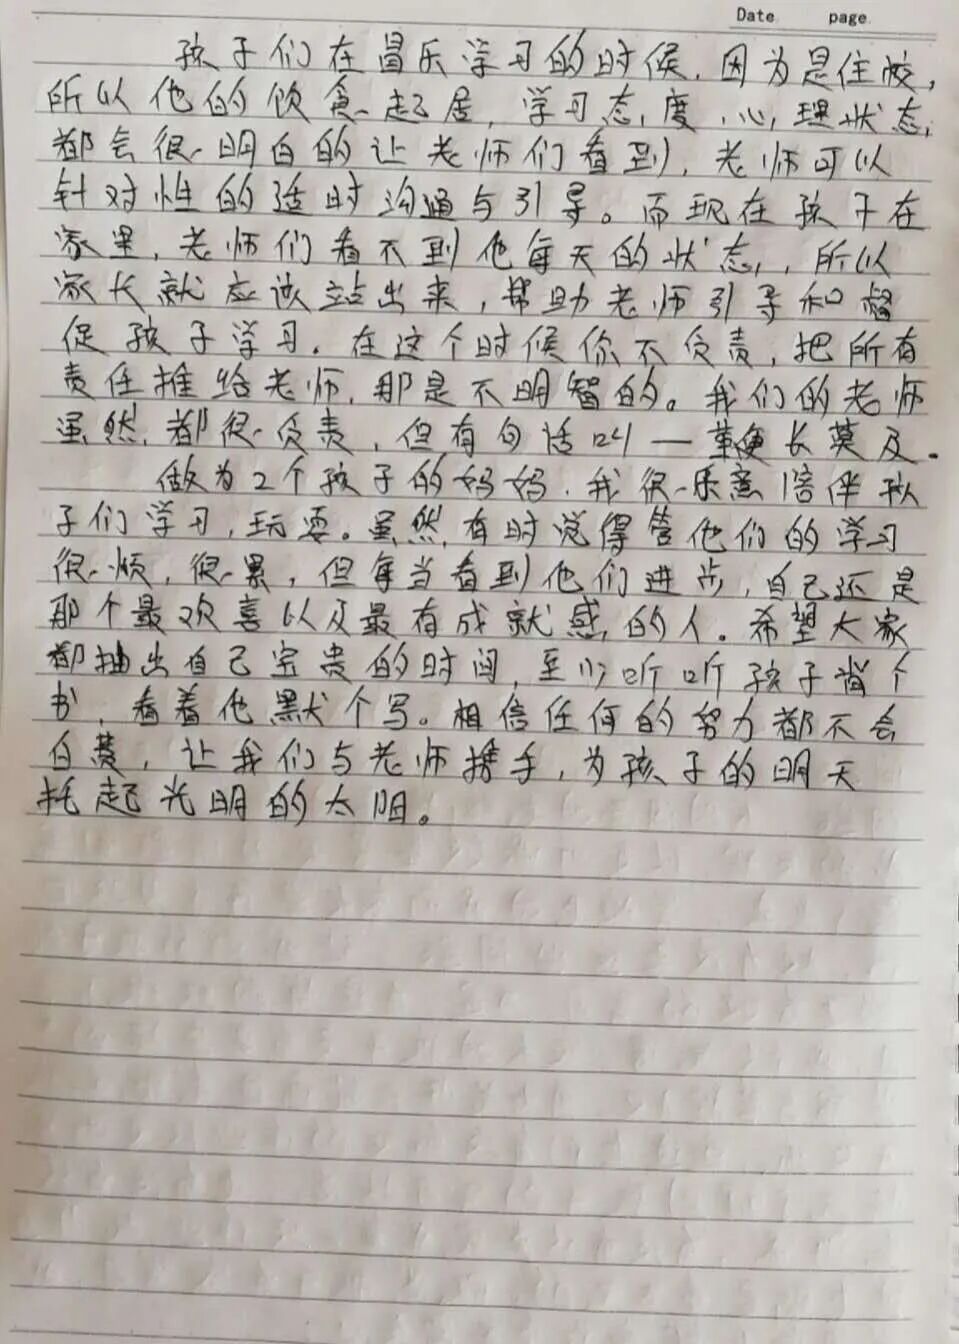 Date page
孩子们在昌乐学习的时候，因为是住校，
所以他的饮食起居，学习态度，心理状态，
都会很明白的让老师们看到，老师可以
针对性的适时沟通与引导。而现在孩子在
家里，老师们看不到他每天的状态，所以
家长就应该站出来，帮助老师引导和督
促孩子学习。在这个时候你不负责，把所有
责任推给老师，那是不明智的。我们的老师
虽然都很负责，但有句话叫—鞭长莫及。
做为2个孩子的妈妈，我很乐意陪伴孩
子们学习，玩耍。虽然有时觉得管他们的学习
很烦，很累，但每当看到他们进步，自己还是
那个最欢喜以及最有成就感的人。希望大家
都抽出自己宝贵的时间，至少听听孩子背个
书，看着他默个写。相信任何的努力都不会
白费，让我们与老师携手，为孩子的明天
托起光明的太阳。